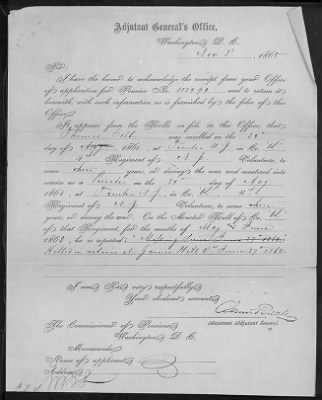 Adjutant General's Office,
Washington, D. C.
Nov 1st, 1865
Sir:
I have the honor to acknowledge the receipt from your Office
of application for Pension No. 117490, and to return it
herewith, with such information as is furnished by the files of this
Office.
It appears from the Rolls on file in this Office, that
Thomas was enrolled on the 29th
day of 1861, at Trenton N. J. in Co. H
4th Regiment of N. J. Volunteers, to
serve three years, or during the war, and mustered into
service as a Private on the 29th day of Aug
1861, at Trenton N. J. in Co. H 4th
Regiment of N. J. Volunteers, to serve three
years, or during the war. On the Muster Roll of Co. H
of that Regiment, for the months of May & June
1862, he is reported Missing since June 27th 1862
Killed in action at Gaines Mills Va. June 27th 1862.
I am, Sir, very respectfully,
Your obedient servant,
Assistant Adjutant General.
The Commissioner of Pensions,
Washington, D. C.
Memoranda:
Name of applicant,
Address,